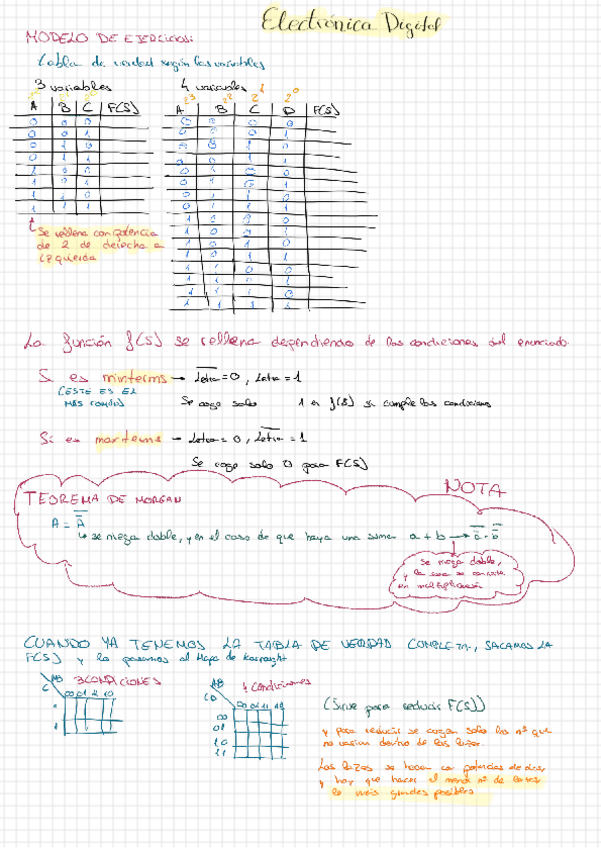 Electrónica Digital
MODELO DE EJERCICIOS:
Tabla de verdad según las variables
3 variables
4 variables
2³ 2² 2¹ 2⁰
A B C F(S)
A B C D F(S)
0 0 0
0 0 1
0 1 0
0 1 1
1 0 0
1 0 1
1 1 0
1 1 1
Se rellena con potencia
de 2 de derecha a
izquierda
La función f(S) se rellena dependiendo de las condiciones del enunciado.
Si es minterms → L̅e̅t̅r̅a̅=0, Letra=1
(ESTE ES EL
MÁS COMÚN)
Se coge solo 1 en f(S) si cumple las condiciones
Si es maxterms → Letra=0, L̅e̅t̅r̅a̅=1
Se coge solo 0 para F(S)
NOTA
TEOREMA DE MORGAN
A = A̿
↳ se niega doble, y en el caso de que haya una suma a + b →
se niega doble,
y la suma se convierte
en multiplicación
CUANDO YA TENEMOS LA TABLA DE VERDAD COMPLETA, SACAMOS LA
F(S) y la pasamos al Mapa de Karnaught
3 CONDICIONES
4 Condiciones
AB
C
00 01 11 10
0
1
AB
CD
00 01 11 10
00
01
10
11
(Sirve para reducir F(S))
y para reducir se cogen solo los nº que
no varían dentro de los lazos.
Los lazos se hacen con potencias de dos,
y hay que hacer el menor nº de lazos
lo más grandes posibles